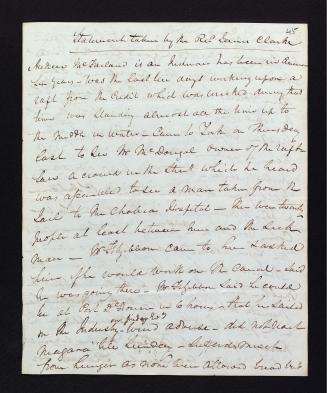 48
Statement taken by the Revd James Clarke
Andrew McFarland is an Irishman has been in America
ten years - was the last ten days working upon a
raft from the Credit which was wrecked during that
time was standing almost all the time up to
the middle in water - Came to York on Thursday
last to See Mr McDougal owner of the raft
Saw a crowd in the Street which he heard
was assembled to see a man taken from the
Jail to the Cholera Hospital - there were twenty
people at least between him and the Sick
man - Mr Fitzgibbon came to him & asked
him if he would work on the Canal - Said
he was going there - Mr Fitzgibbon Said he could
be at in 6 hours - that he Sailed
on the on Friday 20th
wind adverse - did not reach
Niagara till Sunday - Suffered much
from hunger as none were allowed bread but